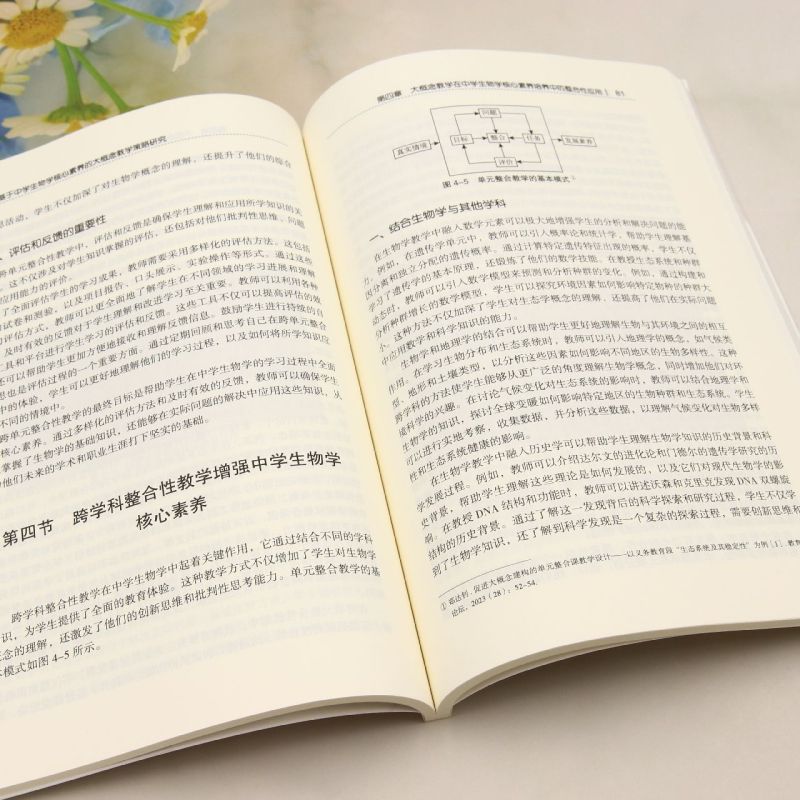 基于中学生物学核心素养的大概念教学策略研究
活动，学生不仅加深了对生物学概念的理解，还提升了他们的综合
、评估和反馈的重要性
跨单元整合性教学中，评估和反馈是确保学生理解和应用所学知识的关
。这不仅涉及对学生知识掌握的评估，还包括对他们批判性思维、问题
应用能力的评价。
了全面评估学生的学习成果，教师需要采用多样化的评估方法。这包括
试卷和测验，以及项目报告、口头展示、实验操作等形式。通过这些
评估方式，教师可以更全面地了解学生在不同领域的学习进展和理解
及时有效的反馈对于学生理解和改进学习至关重要。教师可以利用各种
工具和平台进行学生学习的评估和反馈。这些工具不仅可以提高评估的效
还可以帮助学生更加方便地接收和理解反馈信息。鼓励学生进行持续的自
思也是评估过程的一个重要方面。通过定期回顾和思考自己在跨单元整合
中的体验，学生可以更好地理解他们的学习过程，以及如何将所学知识应
不同的情境中。
跨单元整合性教学的最终目标是帮助学生在中学生物学的学习过程中全面
核心素养。通过多样化的评估方法和及时有效的反馈，教师可以确保学生
掌握了生物学的基础知识，还能够在实际问题的解决中应用这些知识，从
他们未来的学术和职业生涯打下坚实的基础。
第四节 跨学科整合性教学增强中学生物学
核心素养
跨学科整合性教学在中学生物学中起着关键作用，它通过结合不同的学科
识，为学生提供了全面的教育体验。这种教学方式不仅增加了学生对生物学
念的理解，还激发了他们的创新思维和批判性思考能力。单元整合教学的基
本模式如图 4-5 所示。
第四章 大概念教学在中学生物学核心素养培养中的整合性应用 | 81
问题
真实情境 目标 整合 任务 发展素养
评价
图 4-5 单元整合教学的基本模式①
一、结合生物学与其他学科
在生物学教学中融入数学元素可以极大地增强学生的分析和解决问题的能
力。例如，在遗传学单元中，教师可以引入概率论和统计学，帮助学生理解基
因分离和独立分配的遗传概率。通过计算特定遗传特征出现的概率，学生不仅
学习了遗传学的基本原理，还锻炼了他们的数学技能。在教授生态系统和种群
动态时，教师可以引入数学模型来预测和分析种群的变化。例如，通过构建和
分析种群增长的数学模型，学生可以探究环境因素如何影响特定物种的种群大
小。这种方法不仅加深了学生对生态学概念的理解，还提高了他们在实际问题
中应用数学和科学知识的能力。
生物学和地理学的结合可以帮助学生更好地理解生物与其环境之间的相互
作用。在学习生物分布和生态系统时，教师可以引入地理学的概念，如气候类
型、地形和土壤类型，以分析这些因素如何影响不同地区的生物多样性。这种
跨学科的方法使学生能够从更广泛的角度理解生物学概念，同时增加他们对环
境科学的兴趣。在讨论气候变化对生态系统的影响时，教师可以结合地理学和
生物学的知识，探讨全球变暖如何影响特定地区的生物种群和生态系统。学生
可以进行实地考察，收集数据，并分析这些数据，以理解气候变化对生物多样
性和生态系统健康的影响。
在生物学教学中融入历史学可以帮助学生理解生物学知识的历史背景和科
学发展过程。例如，教师可以介绍达尔文的进化论和门德尔的遗传学研究的历
史背景，帮助学生理解这些理论是如何发展的，以及它们对现代生物学的影
响。在教授 DNA 结构和功能时，教师可以讲述沃森和克里克发现 DNA 双螺旋
结构的历史背景。通过了解这一发现背后的科学探索和研究过程，学生不仅学
到了生物学知识，还了解到科学发现是一个复杂的探索过程，需要创新思维和
① 邓达钊. 促进大概念建构的单元整合课教学设计——以义务教育段“生态系统及其稳定性”为例 [J]. 教育
论坛, 2023 (28): 52-54.